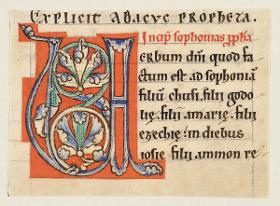 EXPLICIT ABACUC PROPHETA.
Incip sophonias xpha
VERbum dn̄i quod fa
ctum est ad sophoniā
filiū chusi. filii godo
lie. filii amarie. filii
ezechie. in diebus
iosie. filii ammon re